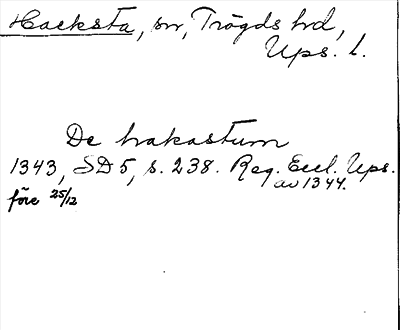 Hacksta, sn, Trögds hd,
Ups. l.
De hakastum
1343, SD 5, s. 238. Reg. Eccl. Ups.
av 1344.
före 25/12